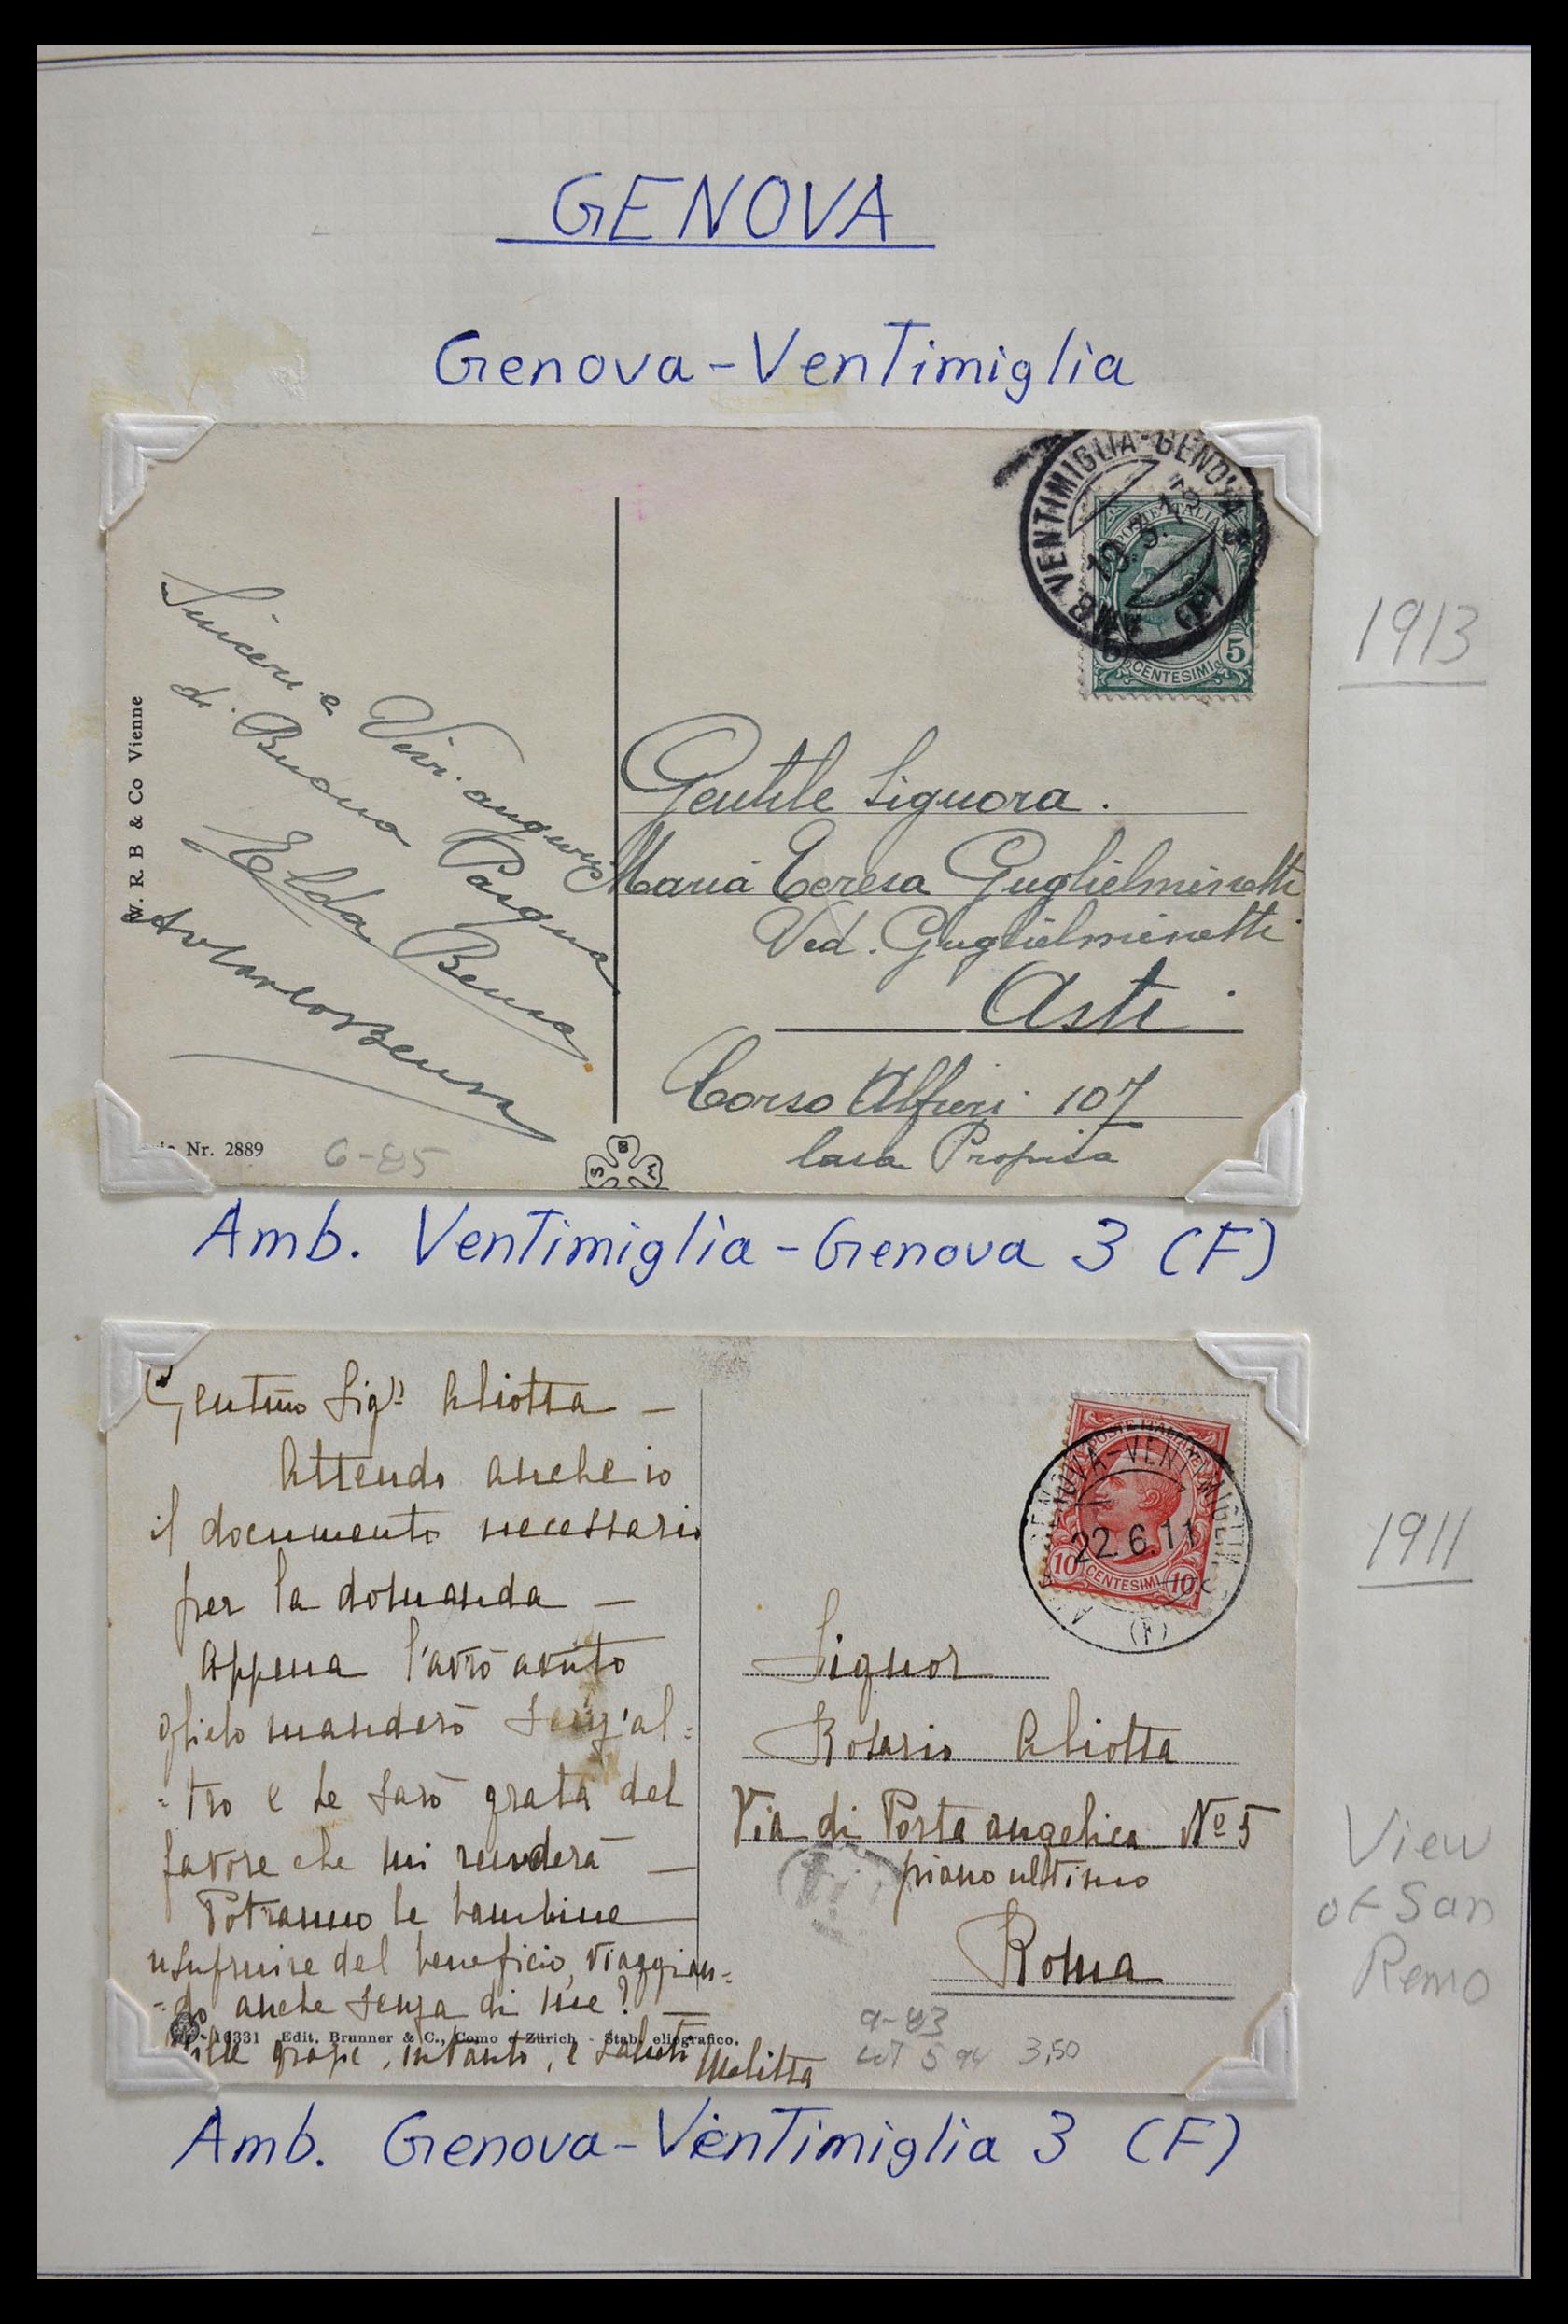 GENOVA
Genova-Ventimiglia
VENTIMIGLIA-GENOVA
19.3.13
(F)
POSTE ITALIANE
5 CENTESIMI 5
1913
W. R B & Co Vienne
Sinceri e Vivi auguri
di Buona Pasqua
Elda Bensa
Gentile Signora.
Maria Teresa Guglielminetti
Ved. Guglielminetti
Asti
Corso Alfieri 107
Casa Propria
Nr. 2889
6-85
S B M
Amb. Ventimiglia-Genova 3 (F)
Gentmo Sigr Aliotta —
Attendo anche io
il documento necessario
per la domanda —
Appena l'avrò avuto
glielo manderò senz'al=
=tro e Le sarò grata del
favore che mi renderà —
Potranno le bambine
usufruire del beneficio, viaggian=
=do anche senza di me? —
Mille grazie, intanto, e saluti Melitta
16331 Edit. Brunner & C., Como e Zürich - Stab. eliografico.
POSTE ITALIANE
10 CENTESIMI 10
GENOVA-VENTIMIGLIA
22.6.11
(F)
1911
Signor
Rosario Aliotta
Via di Porta angelica No 5
piano ultimo
Roma
View
of San
Remo
9-83
LOT 594 3,50
Amb. Genova-Ventimiglia 3 (F)